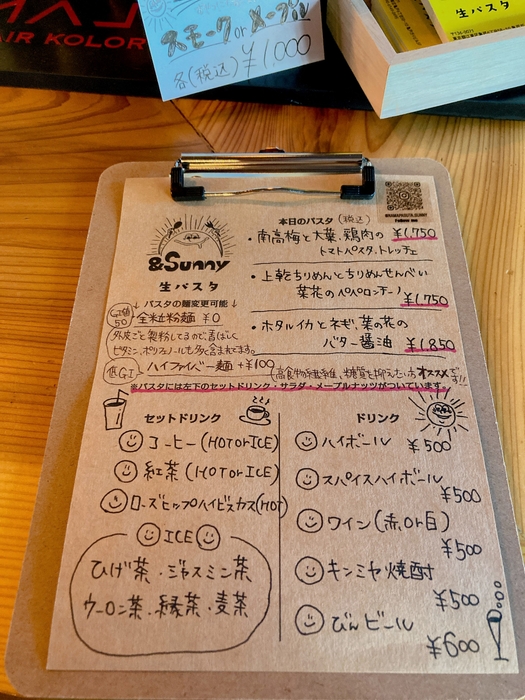 スモーク or メープル
各(税込) ¥1,000
AIR KOLOR
生パスタ
@KAMAPASTA.SUNNY
Follow me
&Sunny
生パスタ
↓ パスタの麺変更可能 ↓
GI値50 全粒粉麺 ¥0
外皮ごと製粉してるので、香ばしく
ビタミン、ポリフェノールも多く含まれてます。
低GI ハイファイバー麺 +¥100
(高食物繊維、糖質を抑えたい方オススメです!!)
本日のパスタ (税込)
・南高梅と大葉、鶏肉の ¥1,750
トマトパスタ、トレッチェ
・上乾ちりめんとちりめんせんべい
菜花のペペロンチーノ ¥1,750
・ホタルイカとネギ、菜の花の
バター醤油 ¥1,850
※パスタには左下のセットドリンク・サラダ・メープルナッツがついています。
セットドリンク
コーヒー (HOT or ICE)
紅茶 (HOT or ICE)
ローズヒップハイビスカス(HOT)
ICE
ひげ茶・ジャスミン茶
ウーロン茶・緑茶・麦茶
ドリンク
ハイボール ¥500
スパイスハイボール
¥500
ワイン (赤 or 白)
¥500
キンミヤ焼酎
¥500
びんビール
¥600